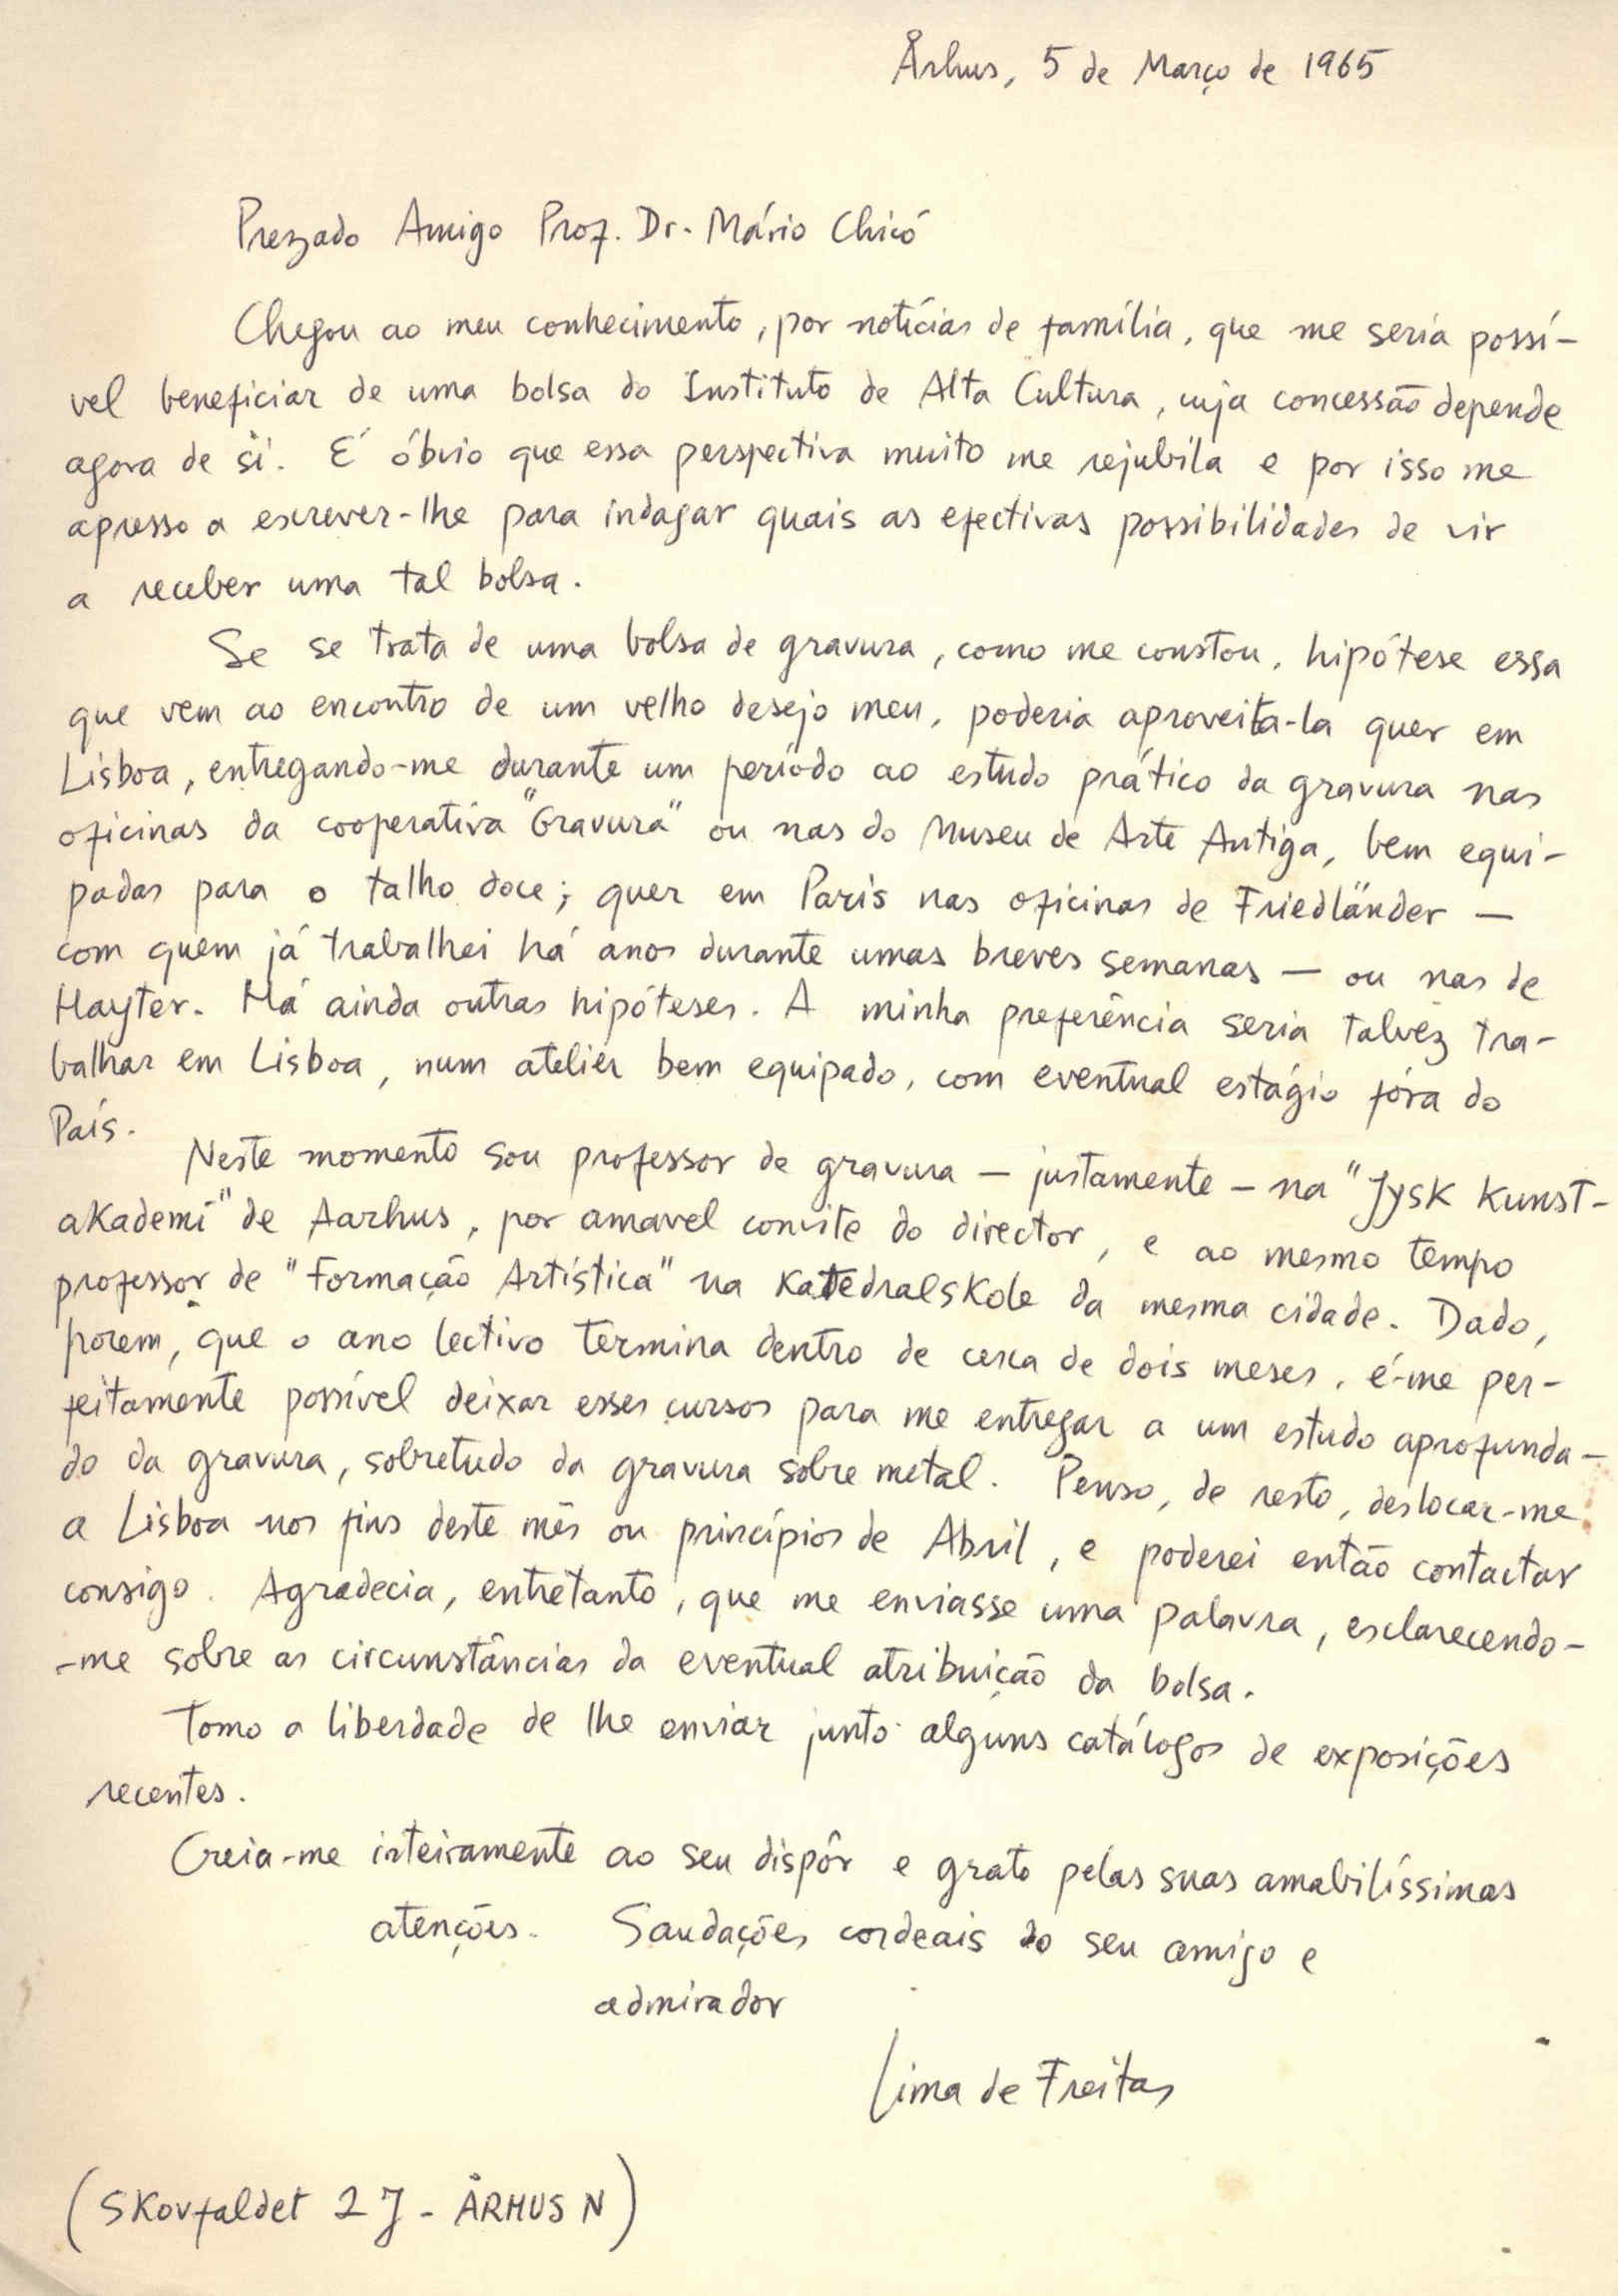 Århus, 5 de Março de 1965
Prezado Amigo Prof. Dr. Mário Chicó
Chegou ao meu conhecimento, por notícias de família, que me seria possí-
vel beneficiar de uma bolsa do Instituto de Alta Cultura, cuja concessão depende
agora de si. É óbvio que essa perspectiva muito me rejubila e por isso me
apresso a escrever-lhe para indagar quais as efectivas possibilidades de vir
a receber uma tal bolsa.
Se se trata de uma bolsa de gravura, como me constou, hipótese essa
que vem ao encontro de um velho desejo meu, poderia aproveita-la quer em
Lisboa, entregando-me durante um período ao estudo prático da gravura nas
oficinas da cooperativa "Gravura" ou nas do Museu de Arte Antiga, bem equi-
padas para o talho doce; quer em Paris nas oficinas de Friedländer —
com quem já trabalhei há anos durante umas breves semanas — ou nas de
Hayter. Há ainda outras hipóteses. A minha preferência seria talvez tra-
balhar em Lisboa, num atelier bem equipado, com eventual estágio fóra do
País.
Neste momento sou professor de gravura — justamente — na "Jysk Kunst-
akademi" de Aarhus, por amavel convite do director, e ao mesmo tempo
professor de "Formação Artística" na Katedralskole da mesma cidade. Dado,
porem, que o ano lectivo termina dentro de cerca de dois meses, é-me per-
feitamente possível deixar esses cursos para me entregar a um estudo aprofunda-
do da gravura, sobretudo da gravura sobre metal. Penso, de resto, deslocar-me
a Lisboa nos fins deste mês ou princípios de Abril, e poderei então contactar
consigo. Agradecia, entretanto, que me enviasse uma palavra, esclarecendo-
-me sobre as circunstâncias da eventual atribuição da bolsa.
Tomo a liberdade de lhe enviar junto alguns catálogos de exposições
recentes.
Creia-me inteiramente ao seu dispôr e grato pelas suas amabilíssimas
atenções. Saudações cordeais do seu amigo e
admirador
Lima de Freitas
(Skovfaldet 2 J - ÅRHUS N)